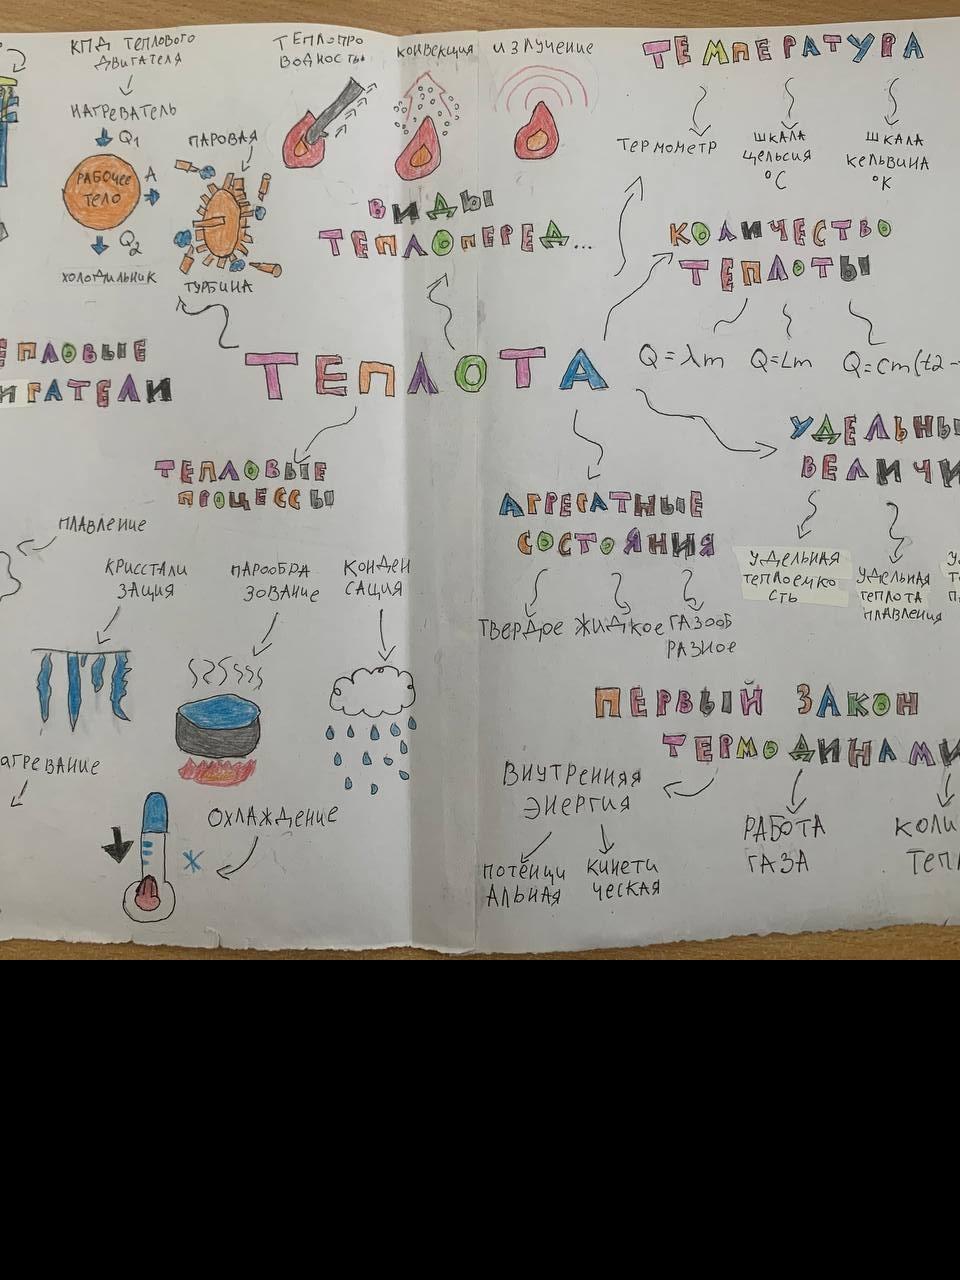 КПД ТЕПЛОВОГО
ДВИГАТЕЛЯ
НАГРЕВАТЕЛЬ
Q1
РАБОЧЕЕ
ТЕЛО
A
Q2
ХОЛОДИЛЬНИК
ПАРОВАЯ
ТУРБИНА
ТЕПЛОПРО
ВОДНОСТЬ
КОНВЕКЦИЯ
ИЗЛУЧЕНИЕ
ВИДЫ
ТЕПЛОПЕРЕД...
ТЕМПЕРАТУРА
ТЕРМОМЕТР
ШКАЛА
ЦЕЛЬСИЯ
°C
ШКАЛА
КЕЛЬВИНА
°K
КОЛИЧЕСТВО
ТЕПЛОТЫ
Q=λm
Q=Lm
Q=cm(t2-
ЕПЛОВЫЕ
ИГАТЕЛИ
ТЕПЛОТА
УДЕЛЬНЫ
ВЕЛИЧИ
УДЕЛЬНАЯ
ТЕПЛОЕМКО
СТЬ
УДЕЛЬНАЯ
ТЕПЛОТА
ПЛАВЛЕНИЯ
ТЕПЛОВЫЕ
ПРОЦЕССЫ
ПЛАВЛЕНИЕ
КРИСТАЛИ
ЗАЦИЯ
ПАРООБРА
ЗОВАНИЕ
КОНДЕН
САЦИЯ
АГРЕВАНИЕ
ОХЛАЖДЕНИЕ
АГРЕГАТНЫЕ
СОСТОЯНИЯ
ТВЕРДОЕ
ЖИДКОЕ
ГАЗООБ
РАЗНОЕ
ПЕРВЫЙ ЗАКОН
ТЕРМОДИНАМИ
ВНУТРЕННЯЯ
ЭНЕРГИЯ
ПОТЕНЦИ
АЛЬНАЯ
КИНЕТИ
ЧЕСКАЯ
РАБОТА
ГАЗА
КОЛИ
ТЕПЛ